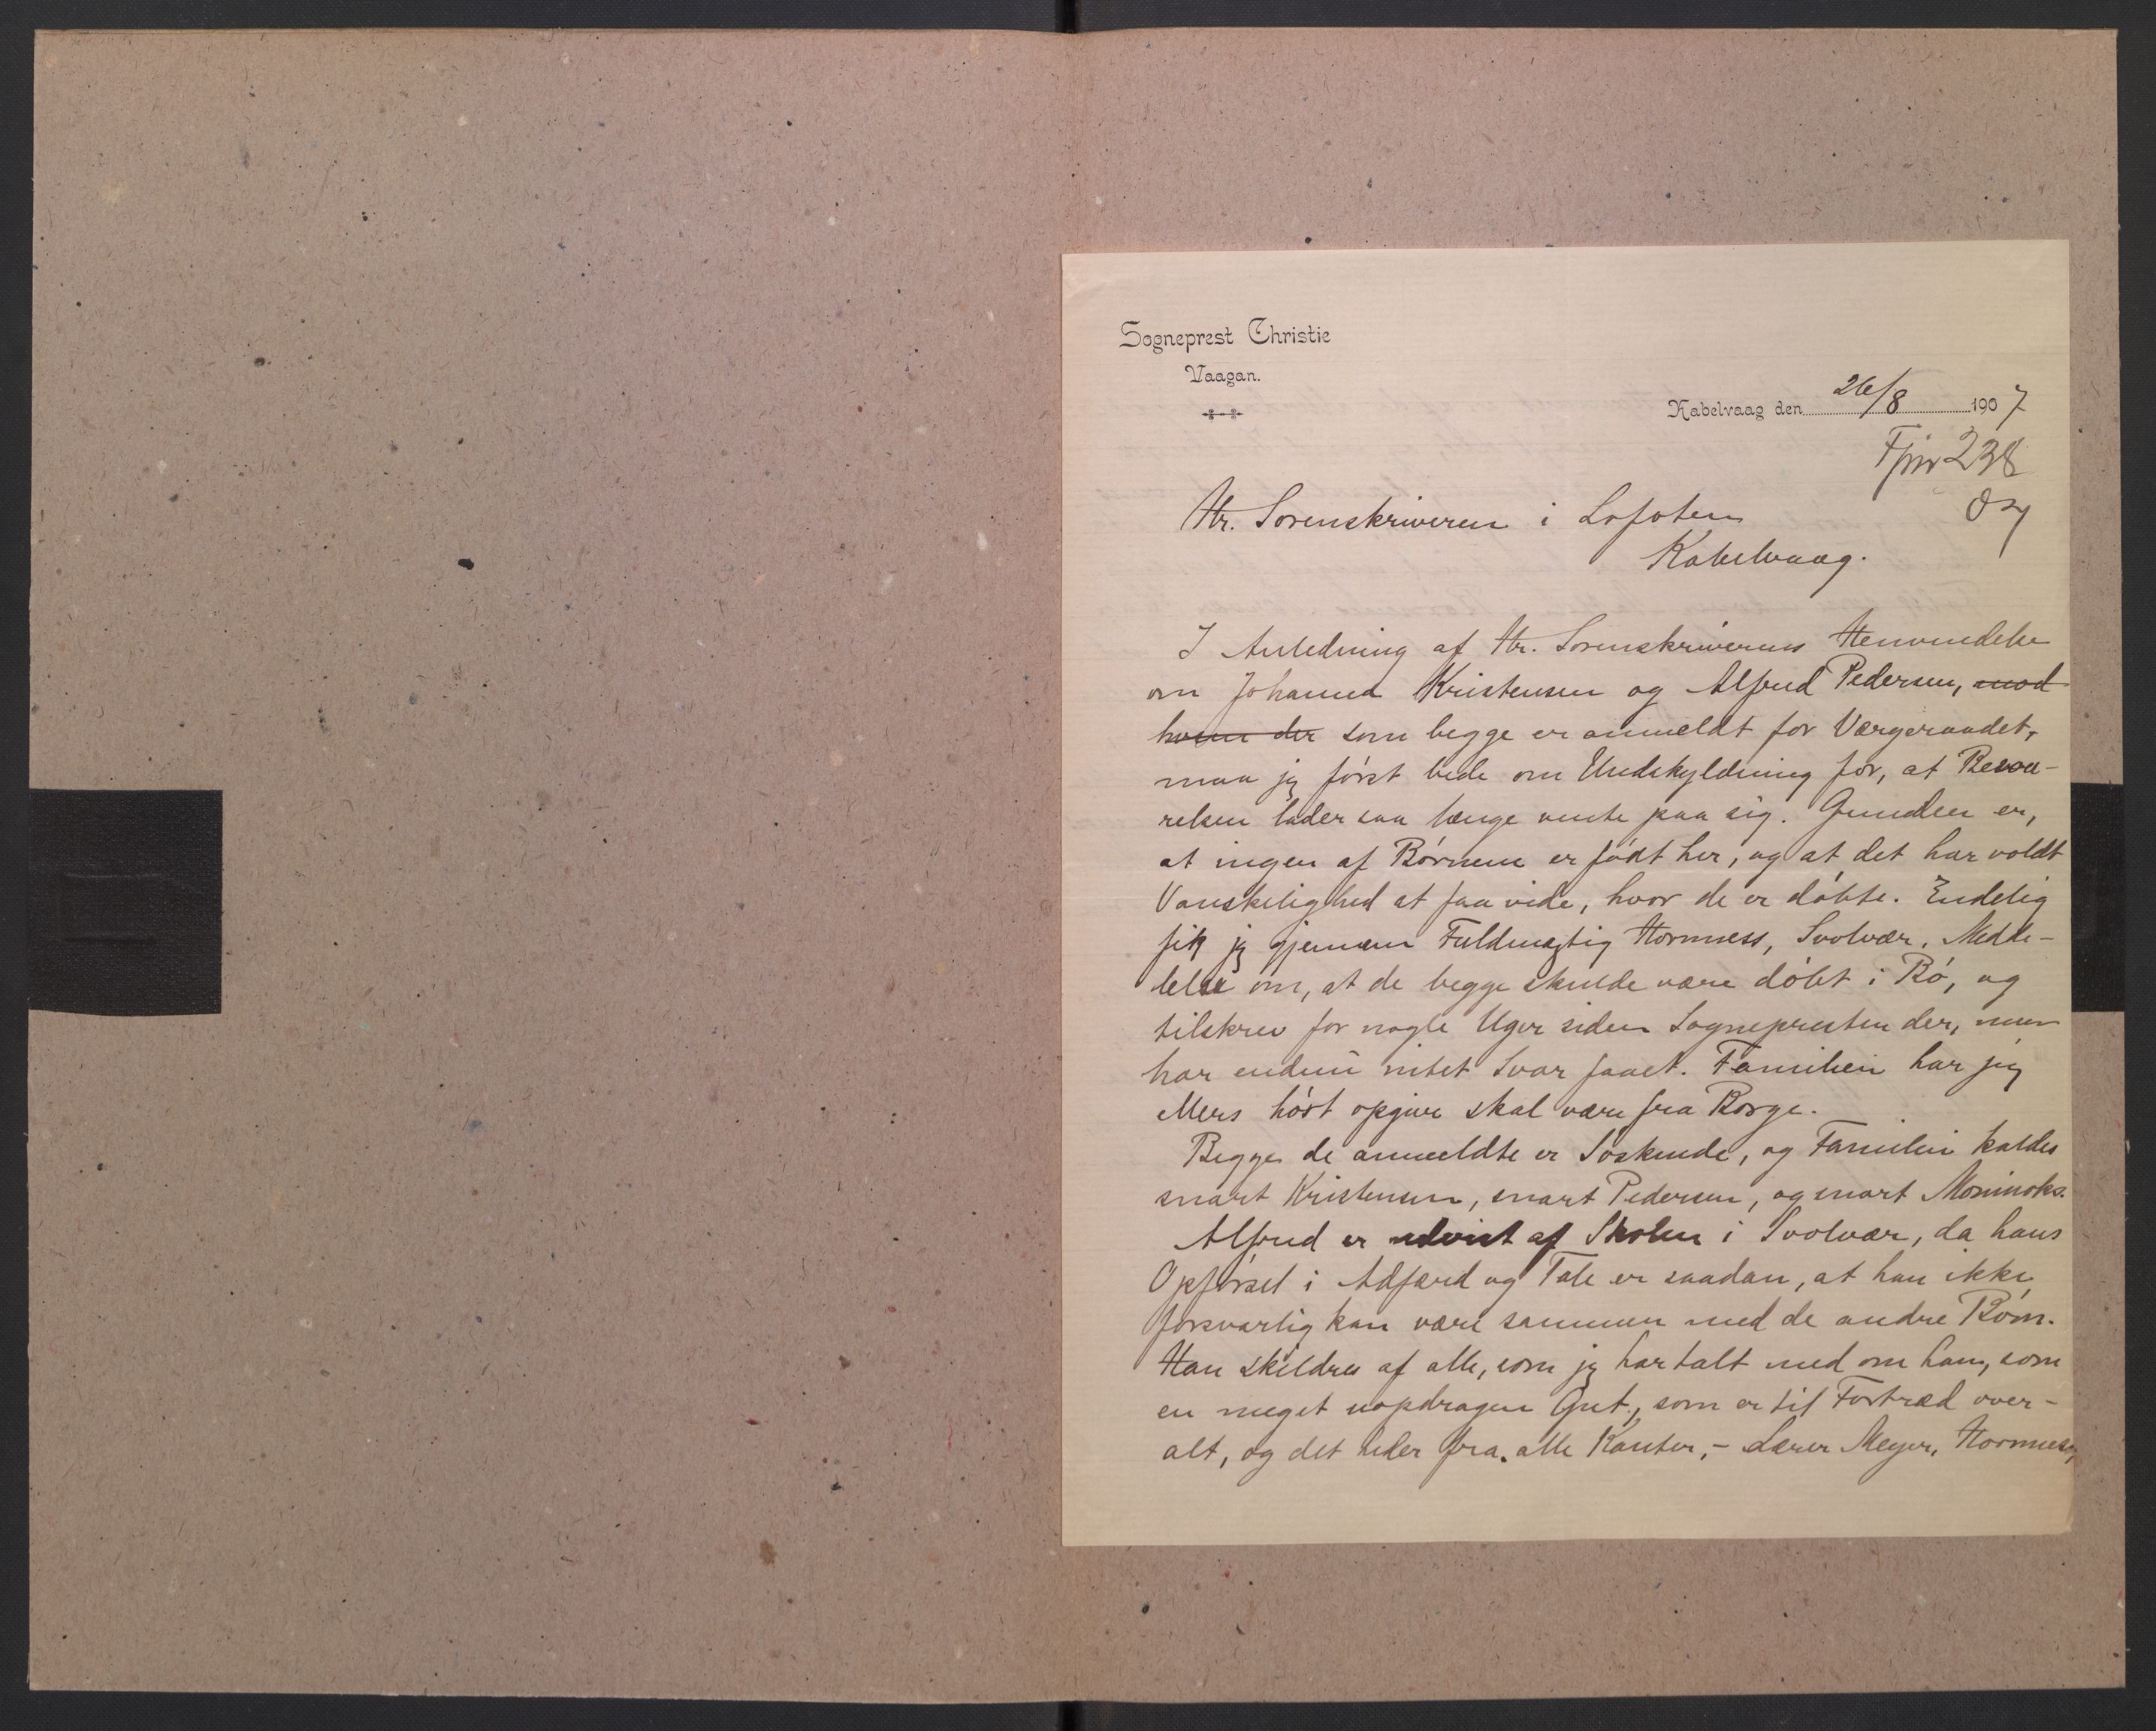 Sogneprest Christie
Vaagan.
Kabelvaag den 26/8 1907
Fjnr 238
07
Hr. Sorenskriveren i Lofoten
Kabelvaag.
I Anledning af Hr. Sorenskriverens Henvendelse
om Johanna Kristensen og Alfred Pedersen, mod
hvem der som begge er anmeldt for Værgeraadet,
maa jeg først bede om Undskyldning for, at Besva-
relsen lader saa længe vente paa sig. Grunden er,
at ingen af Børnene er født her, og at det har voldt
Vanskelighed at faa vide, hvor de er døbte. Endelig
fik jeg gjennem Fuldmægtig Hornness, Svolvær, Medde-
lelse om, at de begge skulde være døbt i Bø, og
tilskrev for nogle Uger siden Sognepresten der, men
har endnu intet Svar faaet. Familien har jeg
ellers hørt opgive skal være fra Borge.
Begge de anmeldte er Søskende, og Familien kaldes
snart Kristensen, snart Pedersen, og snart
Alfred er udvist af Skolen i Svolvær, da hans
Opførsel i Adfærd og Tale er saadan, at han ikke
forsvarlig kan være sammen med de andre Børn.
Han skildres af alle, som jeg har talt med om ham, som
en meget uopdragen Gut, som er til Fortræd over-
alt, og det heder fra alle Kanter, - Lærer Meyer, Hornness,